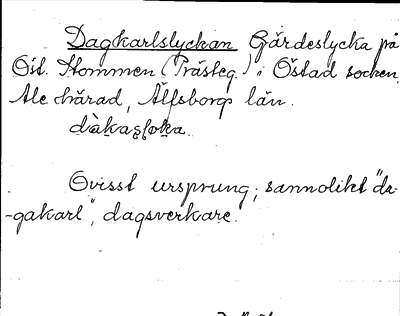 Dagkarlslyckan Gärdeslycka på
Öst. Hommen (Prästeg.) i Östad socken
Ale härad, Älfsborgs län.
Ovisst ursprung; sannolikt "da-
-gakarl", dagsverkare.